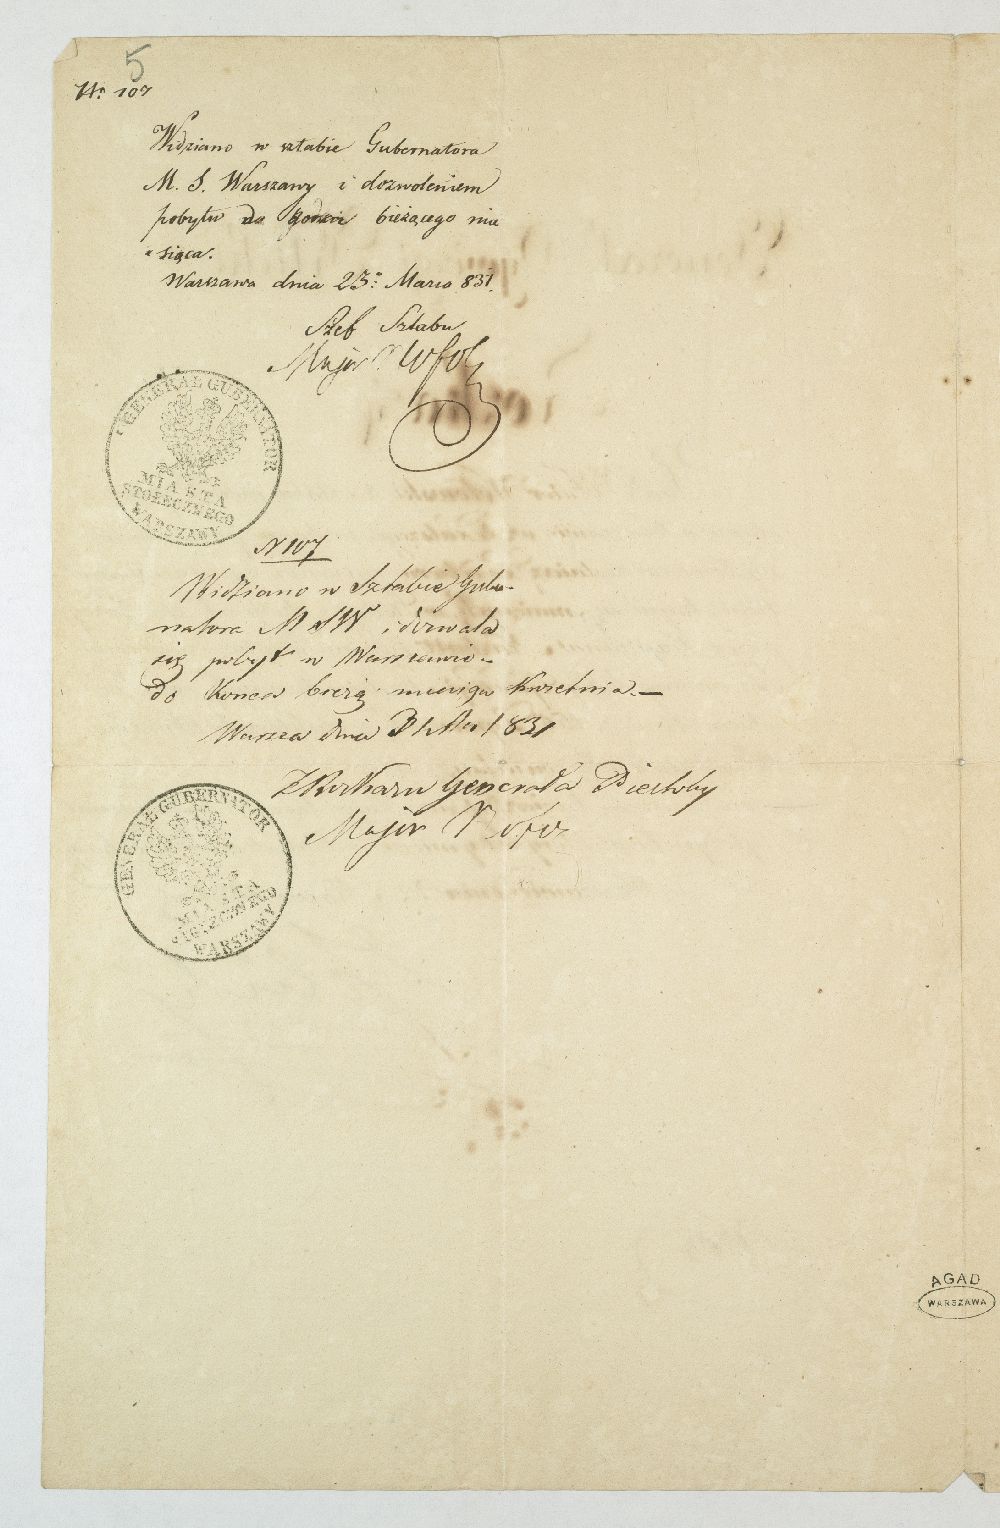 5
No 107
Widziano w sztabie Gubernatora
M. S. Warszawy i dozwoleniem
pobytu do końca bieżącego mie
siąca.
Warszawa dnia 23: Marca 831.
Szef Sztabu
Major
GENERAŁ GUBERNATOR
MIASTA
STOŁECZNEGO
WARSZAWY
N 107
Widziano w Sztabie Guber-
natora M S W i dozwala
się pobyt w Warszawie-
do Konca bieżą: miesiąca Kwietnia.—
Warsza dnia 1831
Z Rozkazu Generała
Major
GENERAŁ GUBERNATOR
MIASTA
STOŁECZNEGO
WARSZAWY
AGAD
WARSZAWA